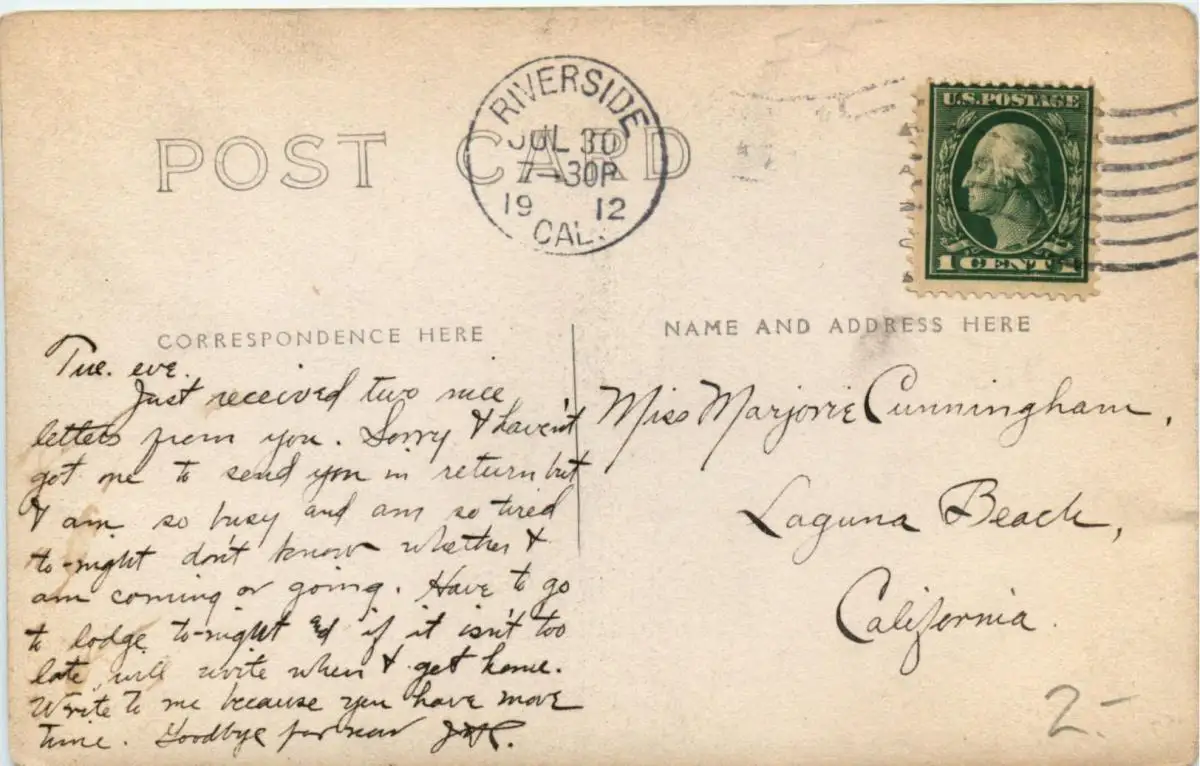 RIVERSIDE
JUL 30
7-30P
19 12
CAL.
POST CARD
U.S. POSTAGE
1 CENT 1
CORRESPONDENCE HERE
NAME AND ADDRESS HERE
Tue. eve.
Just received two nice
letters from you. Sorry I haven't
got one to send you in return but
I am so busy and am so tired
to-night don't know whether I
am coming or going. Have to go
to lodge to-night and if it isn't too
late, will write when I get home.
Write to me because you have more
time. Goodbye for now
Miss Marjorie Cunningham,
Laguna Beach,
California.
2-